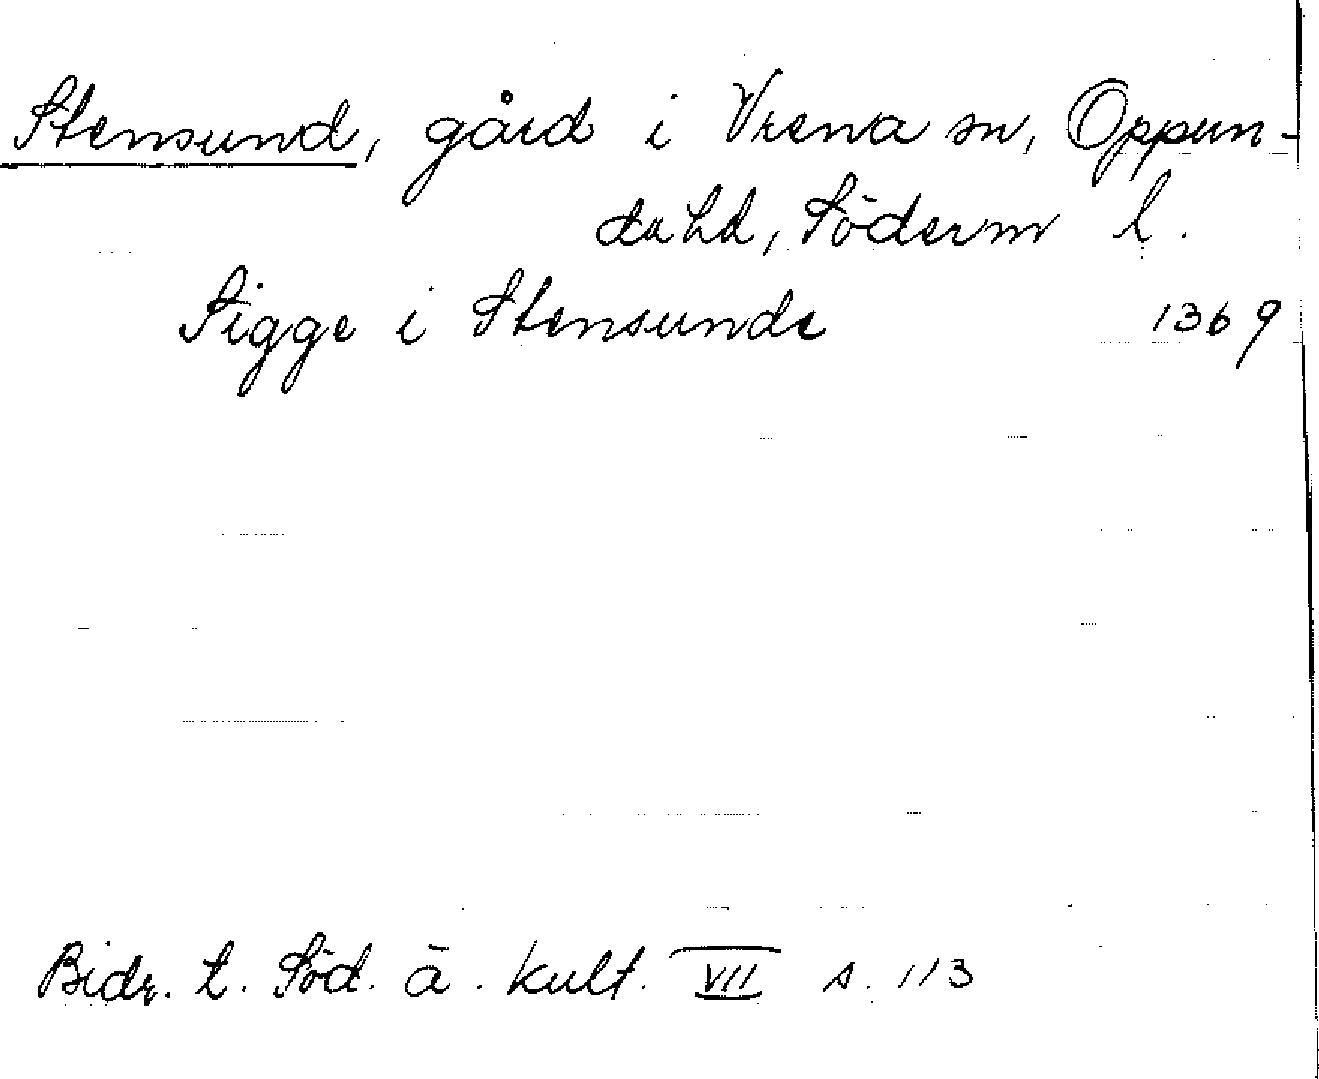 Stensund, gård i Vrena sn, Oppun-
da hd, Söderm l.
Sigge i Stensunde 1369
Bidr. t. Söd. ä. kult. VII s. 113